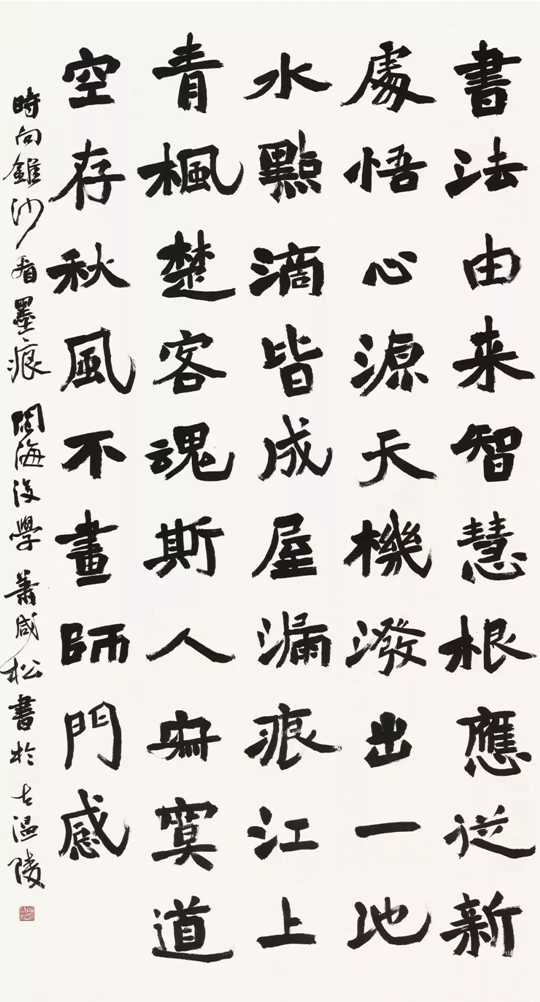 書法由來智慧根應從新
處悟心源天機潑出一地
水點滴皆成屋漏痕江上
青楓楚客魂斯人寂寞道
空存秋風不盡師門感
時向錐沙看墨痕 閩海後學蕭咸松書於古溫陵